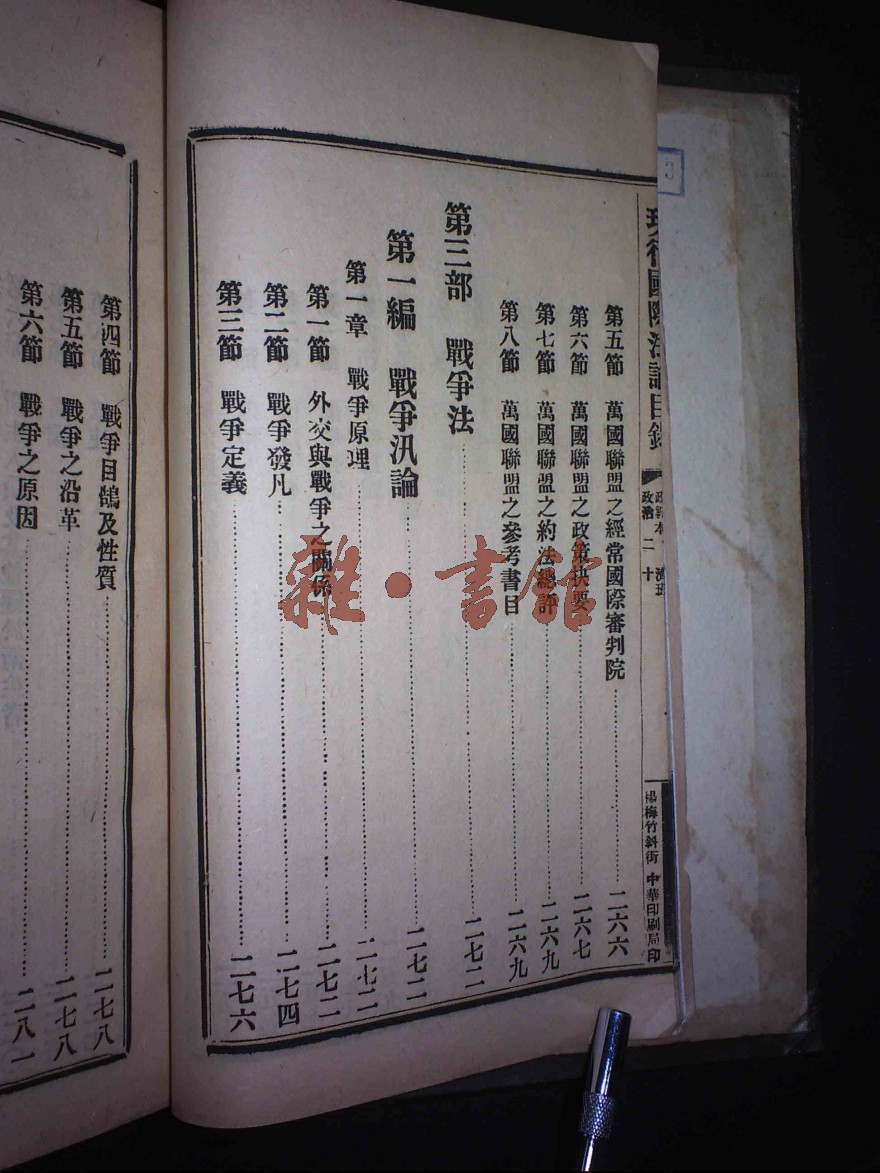 現行國際法論目錄
政治 二十
楊梅竹斜街 中華印刷局印
第五節 萬國聯盟之經常國際審判院 二六六
第六節 萬國聯盟之政策抉要 二六七
第七節 萬國聯盟之約法總評 二六九
第八節 萬國聯盟之參考書目 二六九
第三部 戰爭法 二七二
第一編 戰爭汎論 二七二
第一章 戰爭原理 二七二
第一節 外交與戰爭之關係 二七二
第二節 戰爭發凡 二七四
第三節 戰爭定義 二七六
第四節 戰爭目鵠及性質 二七八
第五節 戰爭之沿革 二七八
第六節 戰爭之原因 二八一
雜·書館